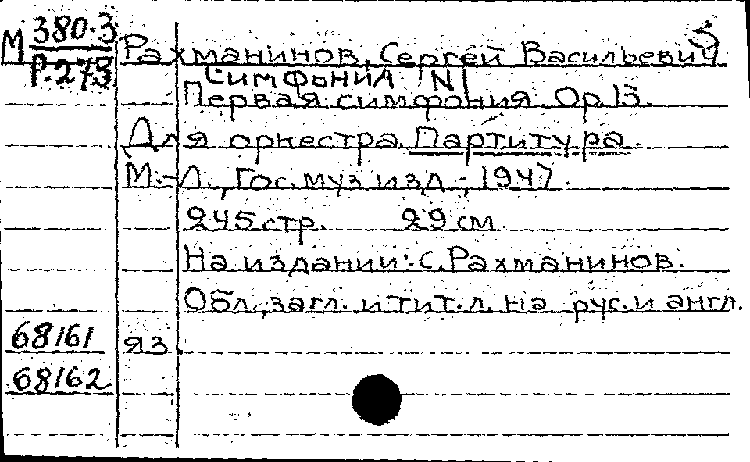 М 380.3
Р.273
5
Рахманинов, Сергей Васильевич
Симфония N1
Первая симфония. Op.13.
Для оркестра. Партитура.
М.-Л., Гос.муз.изд., 1947.
245 стр. 29 см.
На издании: С.Рахманинов.
Обл., загл. и тит.л. на рус. и англ.
яз.
68161
68162